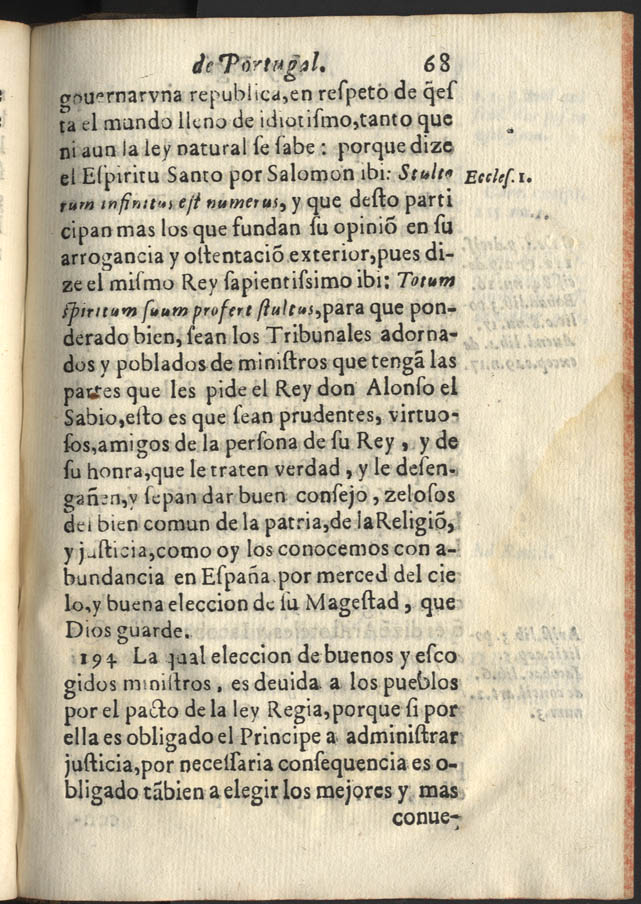 de Portugal. 68
gouernarvna republica,en reſpeto de q̃eſ
ta el mundo lleno de idiotiſmo,tanto que
ni aun la ley natural ſe ſabe: porque dize
el Eſpiritu Santo por Salomon ibi: Stulto Eccleſ. 1.
rum infinitus eſt numerus, y que deſto parti
cipan mas los que fundan ſu opiniõ en ſu
arrogancia y oſtentaciõ exterior,pues di-
ze el miſmo Rey ſapientiſsimo ibi: Totum
ſpiritum ſuum profert ſtultus,para que pon-
derado bien, ſean los Tribunales adorna-
dos y poblados de miniſtros que tengã las
partes que les pide el Rey don Alonſo el
Sabio,eſto es que ſean prudentes, virtuo-
ſos,amigos de la perſona de ſu Rey, y de
ſu honra,que le traten verdad, y le deſen-
gañen,y ſepan dar buen conſejo, zeloſos
del bien comun de la patria,de laReligiõ,
y juſticia,como oy los conocemos con a-
bundancia en Eſpaña por merced del cie
lo,y buena eleccion de ſu Mageſtad, que
Dios guarde.
194 La qual eleccion de buenos y eſco
gidos miniſtros, es deuida a los pueblos
por el pacto de la ley Regia,porque ſi por
ella es obligado el Principe a adminiſtrar
juſticia,por neceſſaria conſequencia es o-
bligado tãbien a elegir los mejores y mas
conue-